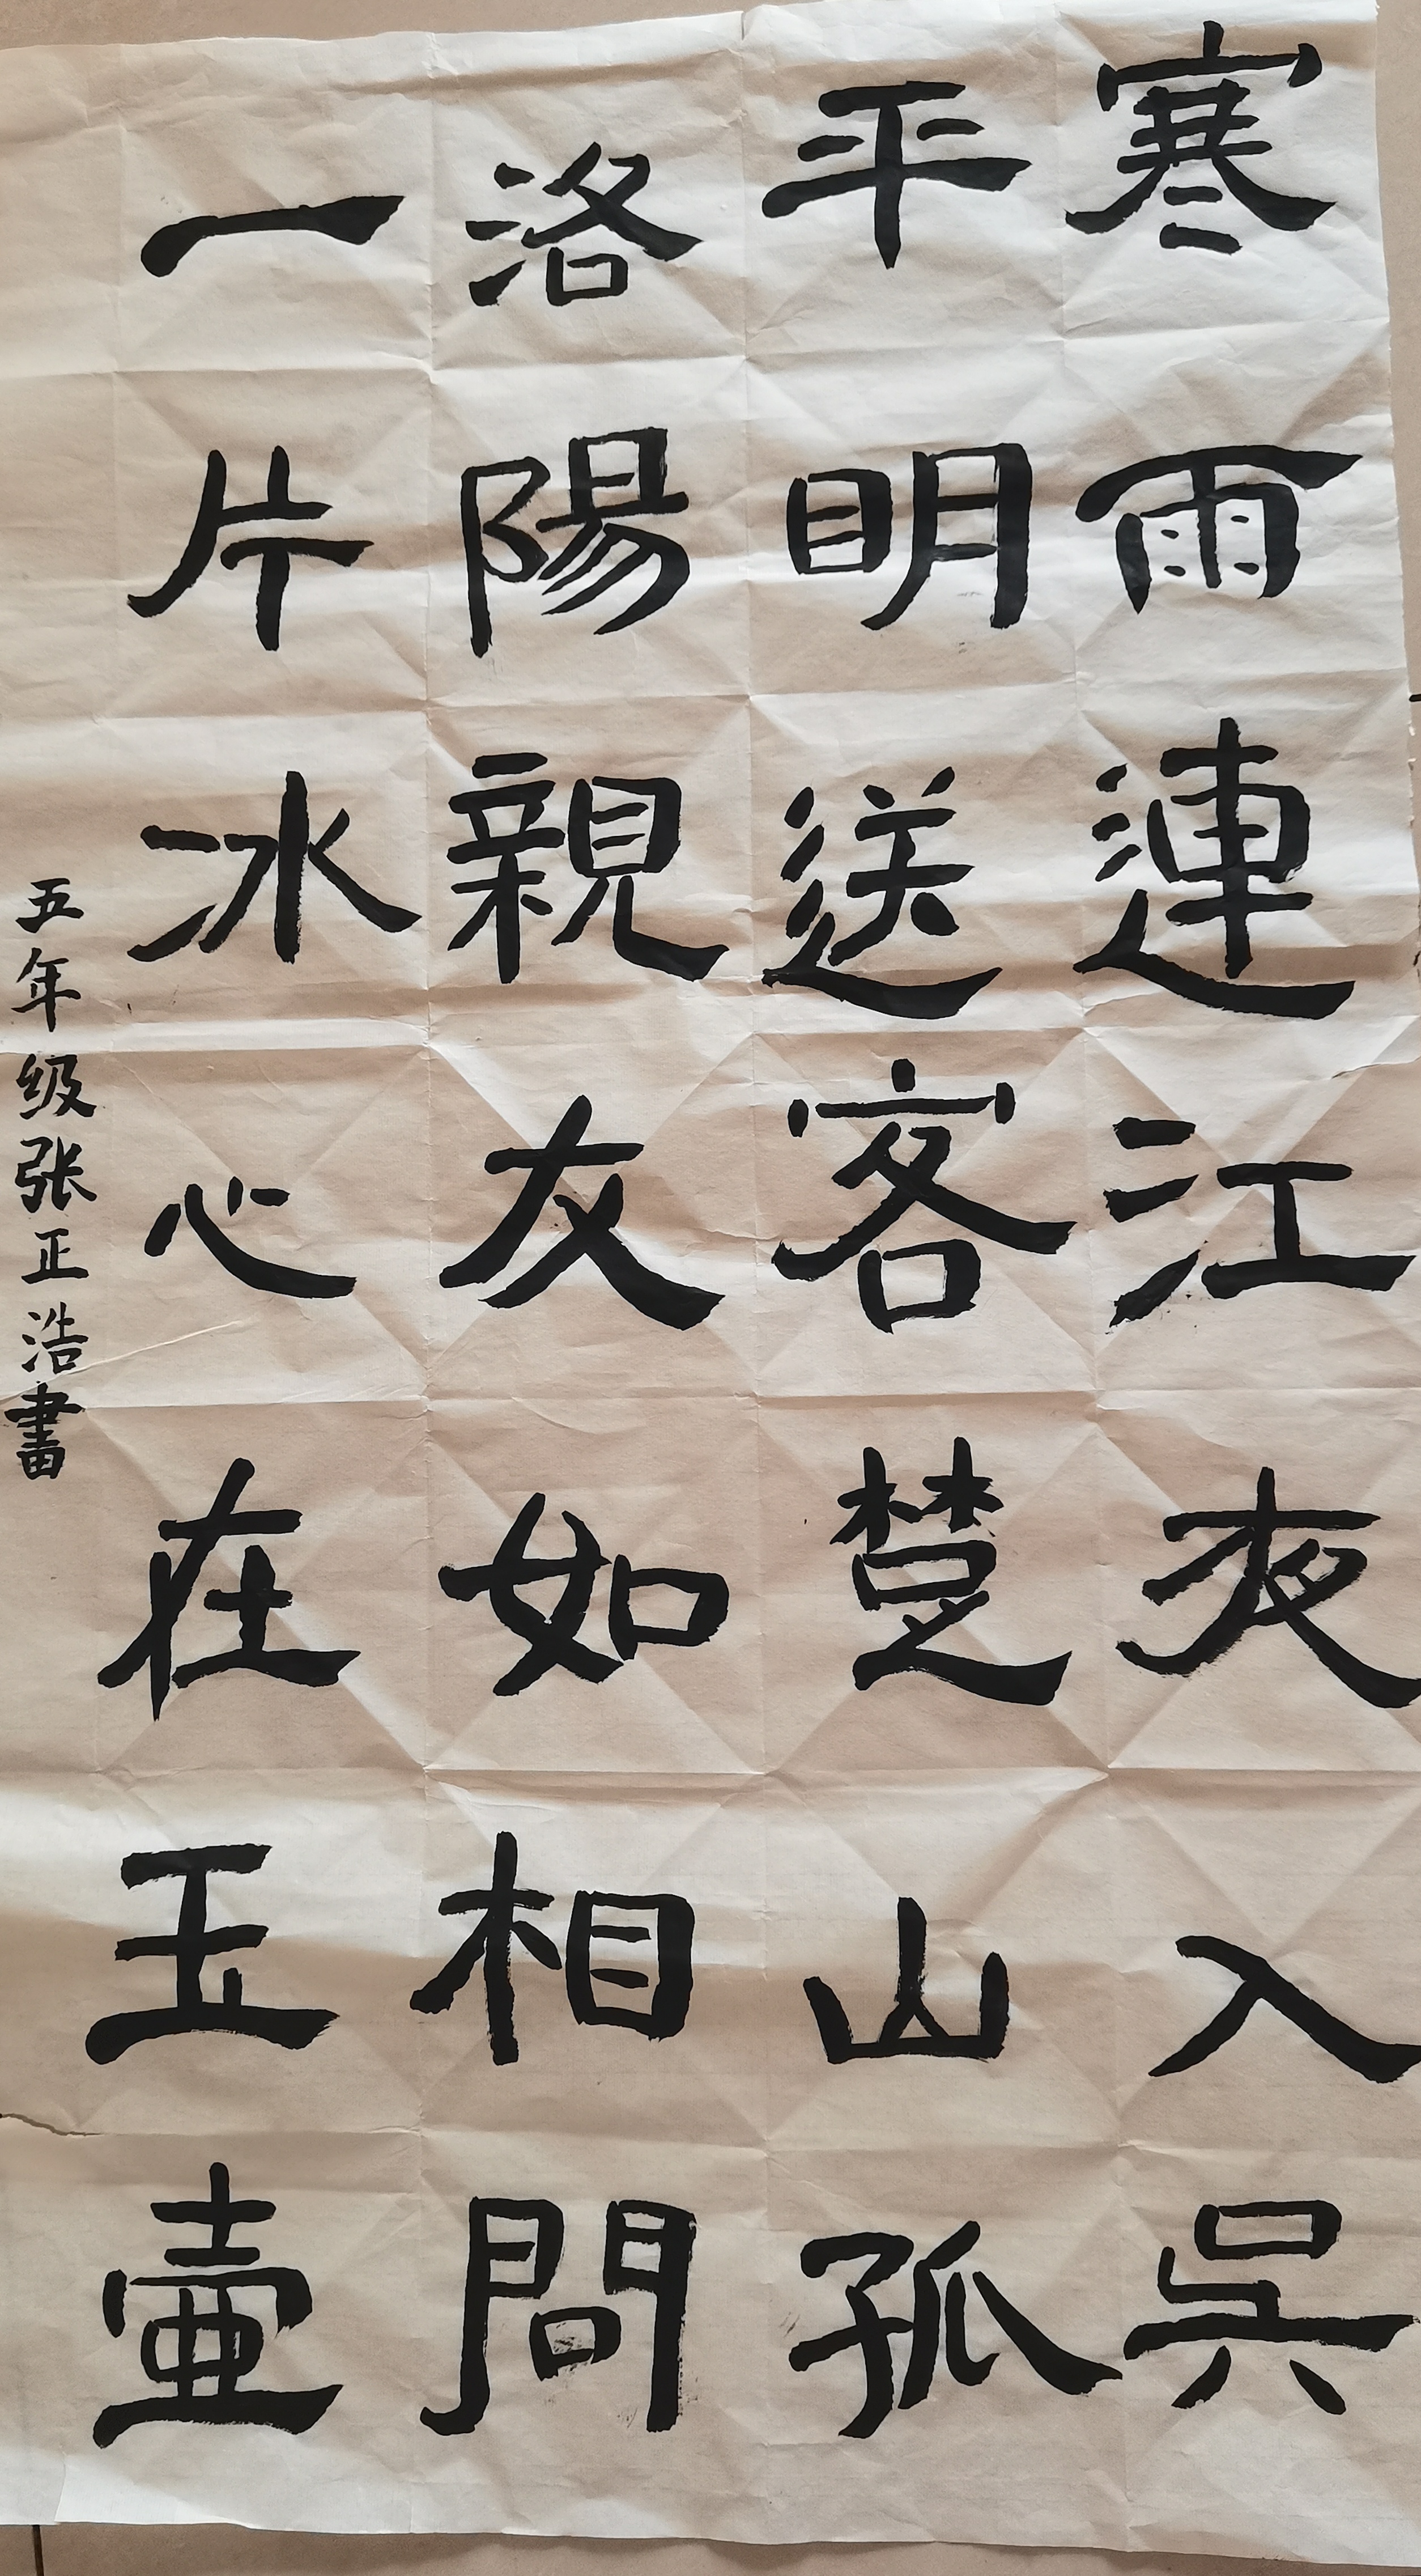 寒雨連江夜入吳
平明送客楚山孤
洛陽親友如相問
一片冰心在玉壺
五年级张正浩書